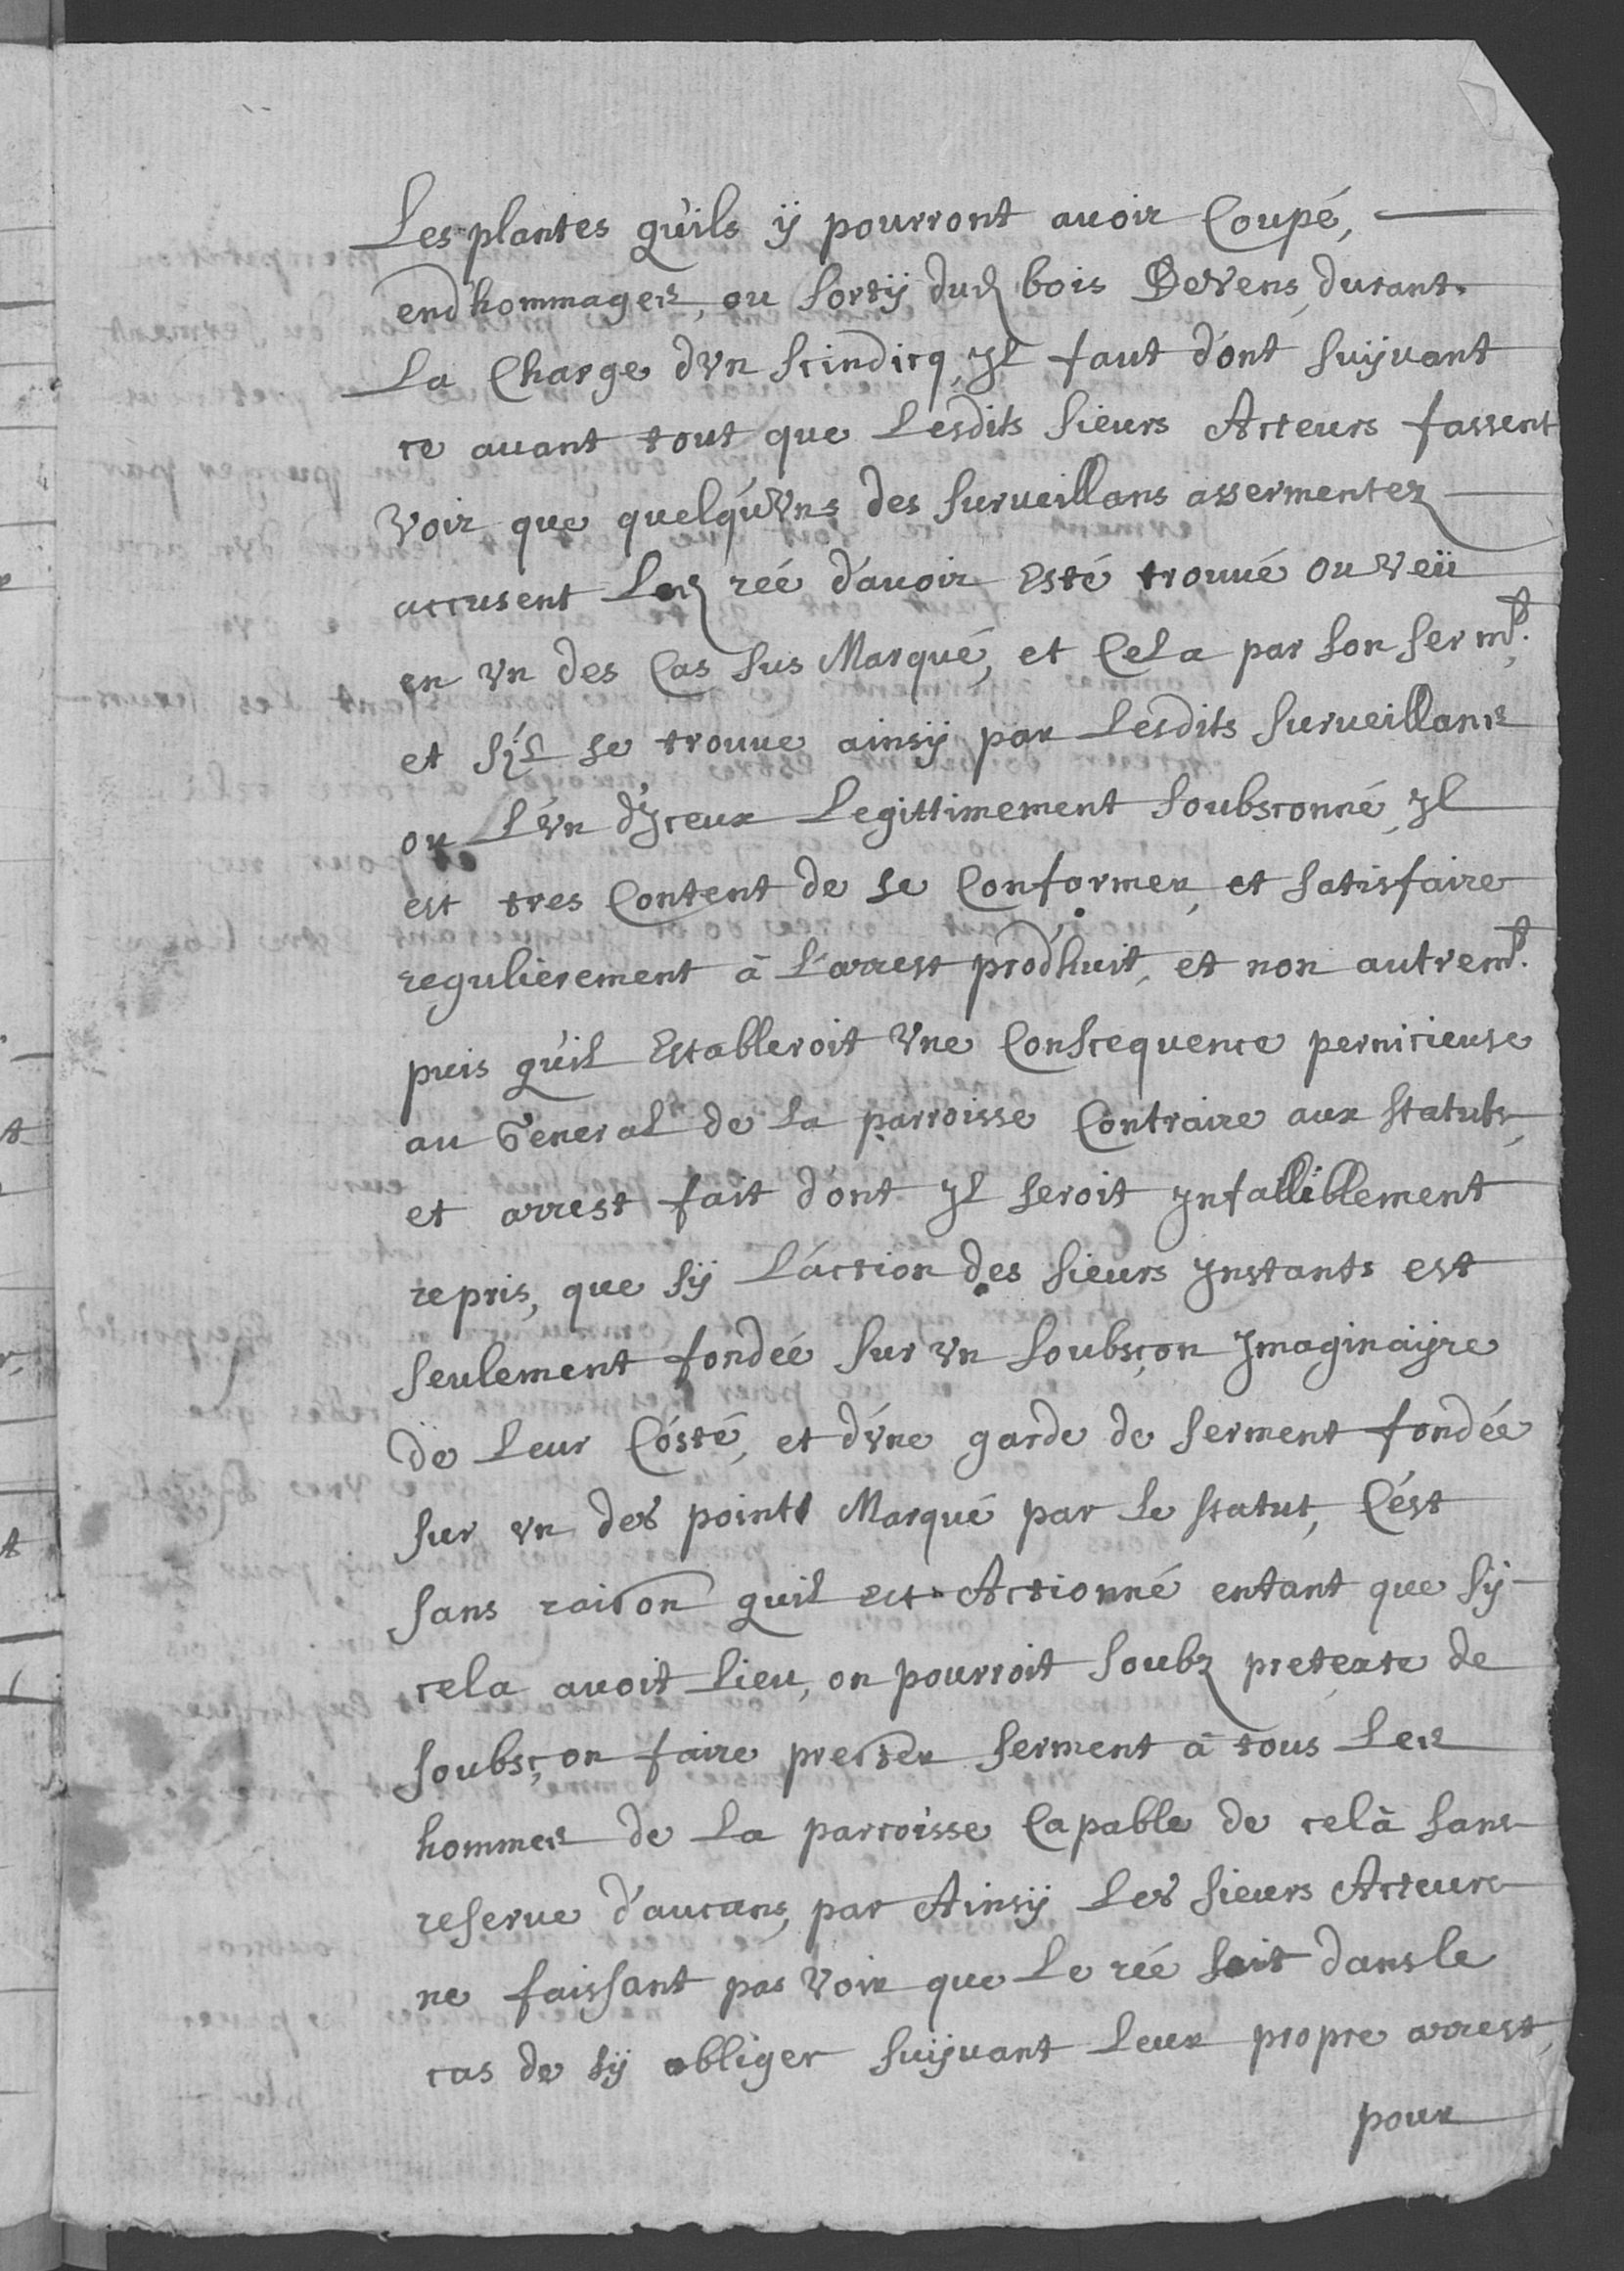 Les plantes qu'ils ÿ pourront avoir Coupé,
endhommager, ou sortÿ dud bois Devens, durant
La Charge d'vn scindicq, Jl faut d'ont suÿvant
ce auant tout que Lesdits sieurs Acteurs fassent
Voir que quelqu'Vns des surveillans assermentez
accusent Led reé d'auoir Esté trouué ou veü
en vn des Cas sus Marqué, et Cela par son sermt.
et s'jL se trouue ainsÿ par Lesdits surveillans
ou L'évn d'Jceux Legittimement soubsconné, Jl
est tres Content de se Conformer, et satisfaire
regulierement à L'arrest prodhuit, et non autremt.
puis qu'il Estableroit Vne Conscequence pernicieuse
au General de La parroisse Contraire aux statuts,
et arrest fait d'ont JL seroit ynfalliblement
repris, que sÿ L'action des sieurs ynstants est
seulement fondeé sur vn soubsçon Jmaginaÿre
de Leur Cósté, et d'vne garde de serment fondée
sur vn des points Marqué par Le statut, C'ést
sans raison quil est Actionné entant que sÿ
cela avoit Lieu, on pourroit soubz pretexte de
soubsçon faire prester serment à tous Les
hommes de La parroisse Capable de celà sans
reserue d'aucuns, par Ainsÿ Les sieurs Acteurs
ne faissant pas Voir que Le reé soit dans le
cas de sÿ obliger suÿvant Leur propre arrest,
pour